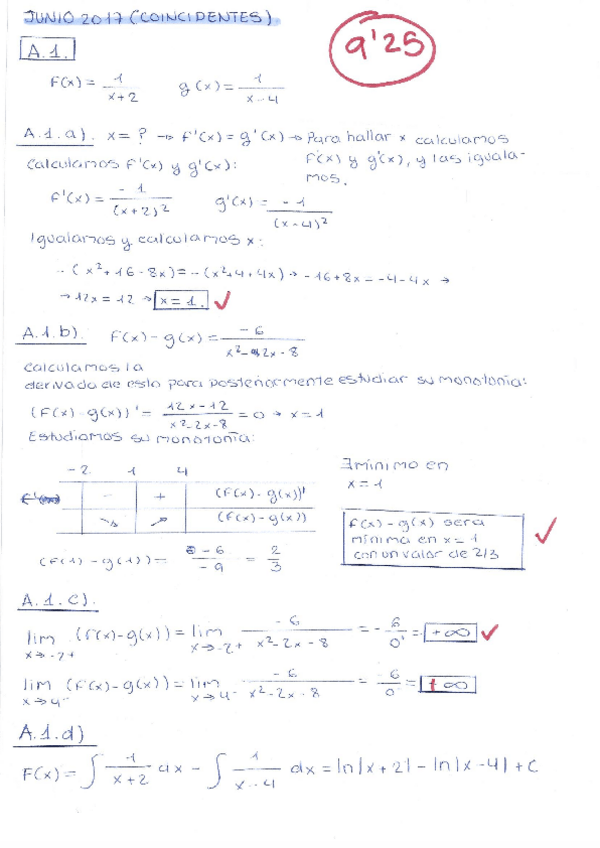 JUNIO 2017 (COINCIDENTES)
9'25
A.1.
F(x) = 1/(x+2)   g(x) = 1/(x-4)
A.1.a). x = ? → f'(x) = g'(x) → Para hallar x calculamos
F'(x) y g'(x), y las iguala-
mos.
Calculamos F'(x) y g'(x):
F'(x) = -1/(x+2)²   g'(x) = -1/(x-4)²
Igualamos y calculamos x:
-(x²+16-8x) = -(x²+4+4x) → -16+8x = -4-4x →
→ 12x = 12 → x = 1. ✓
A.1.b) F(x) - g(x) = -6/(x²-2x-8)
Calculamos la
derivada de esto para posteriormente estudiar su monotonía:
(F(x)-g(x))' = (12x-12)/(x²-2x-8) = 0 → x = 1
Estudiamos su monotonía:
-2 1 4
- + (F(x)-g(x))'
↘ ↗ (F(x)-g(x))
∃ mínimo en
x = 1
(F(1)-g(1)) = -6/-9 = 2/3
f(x) - g(x) será
mínima en x = 1
con un valor de 2/3 ✓
A.1.c).
lim x→-2+ (f(x)-g(x)) = lim x→-2+ -6/(x²-2x-8) = -6/0⁻ = +∞ ✓
lim x→4⁻ (F(x)-g(x)) = lim x→4⁻ -6/(x²-2x-8) = -6/0 = +∞
A.1.d)
F(x) = ∫ 1/(x+2) dx - ∫ 1/(x-4) dx = ln|x+2| - ln|x-4| + C